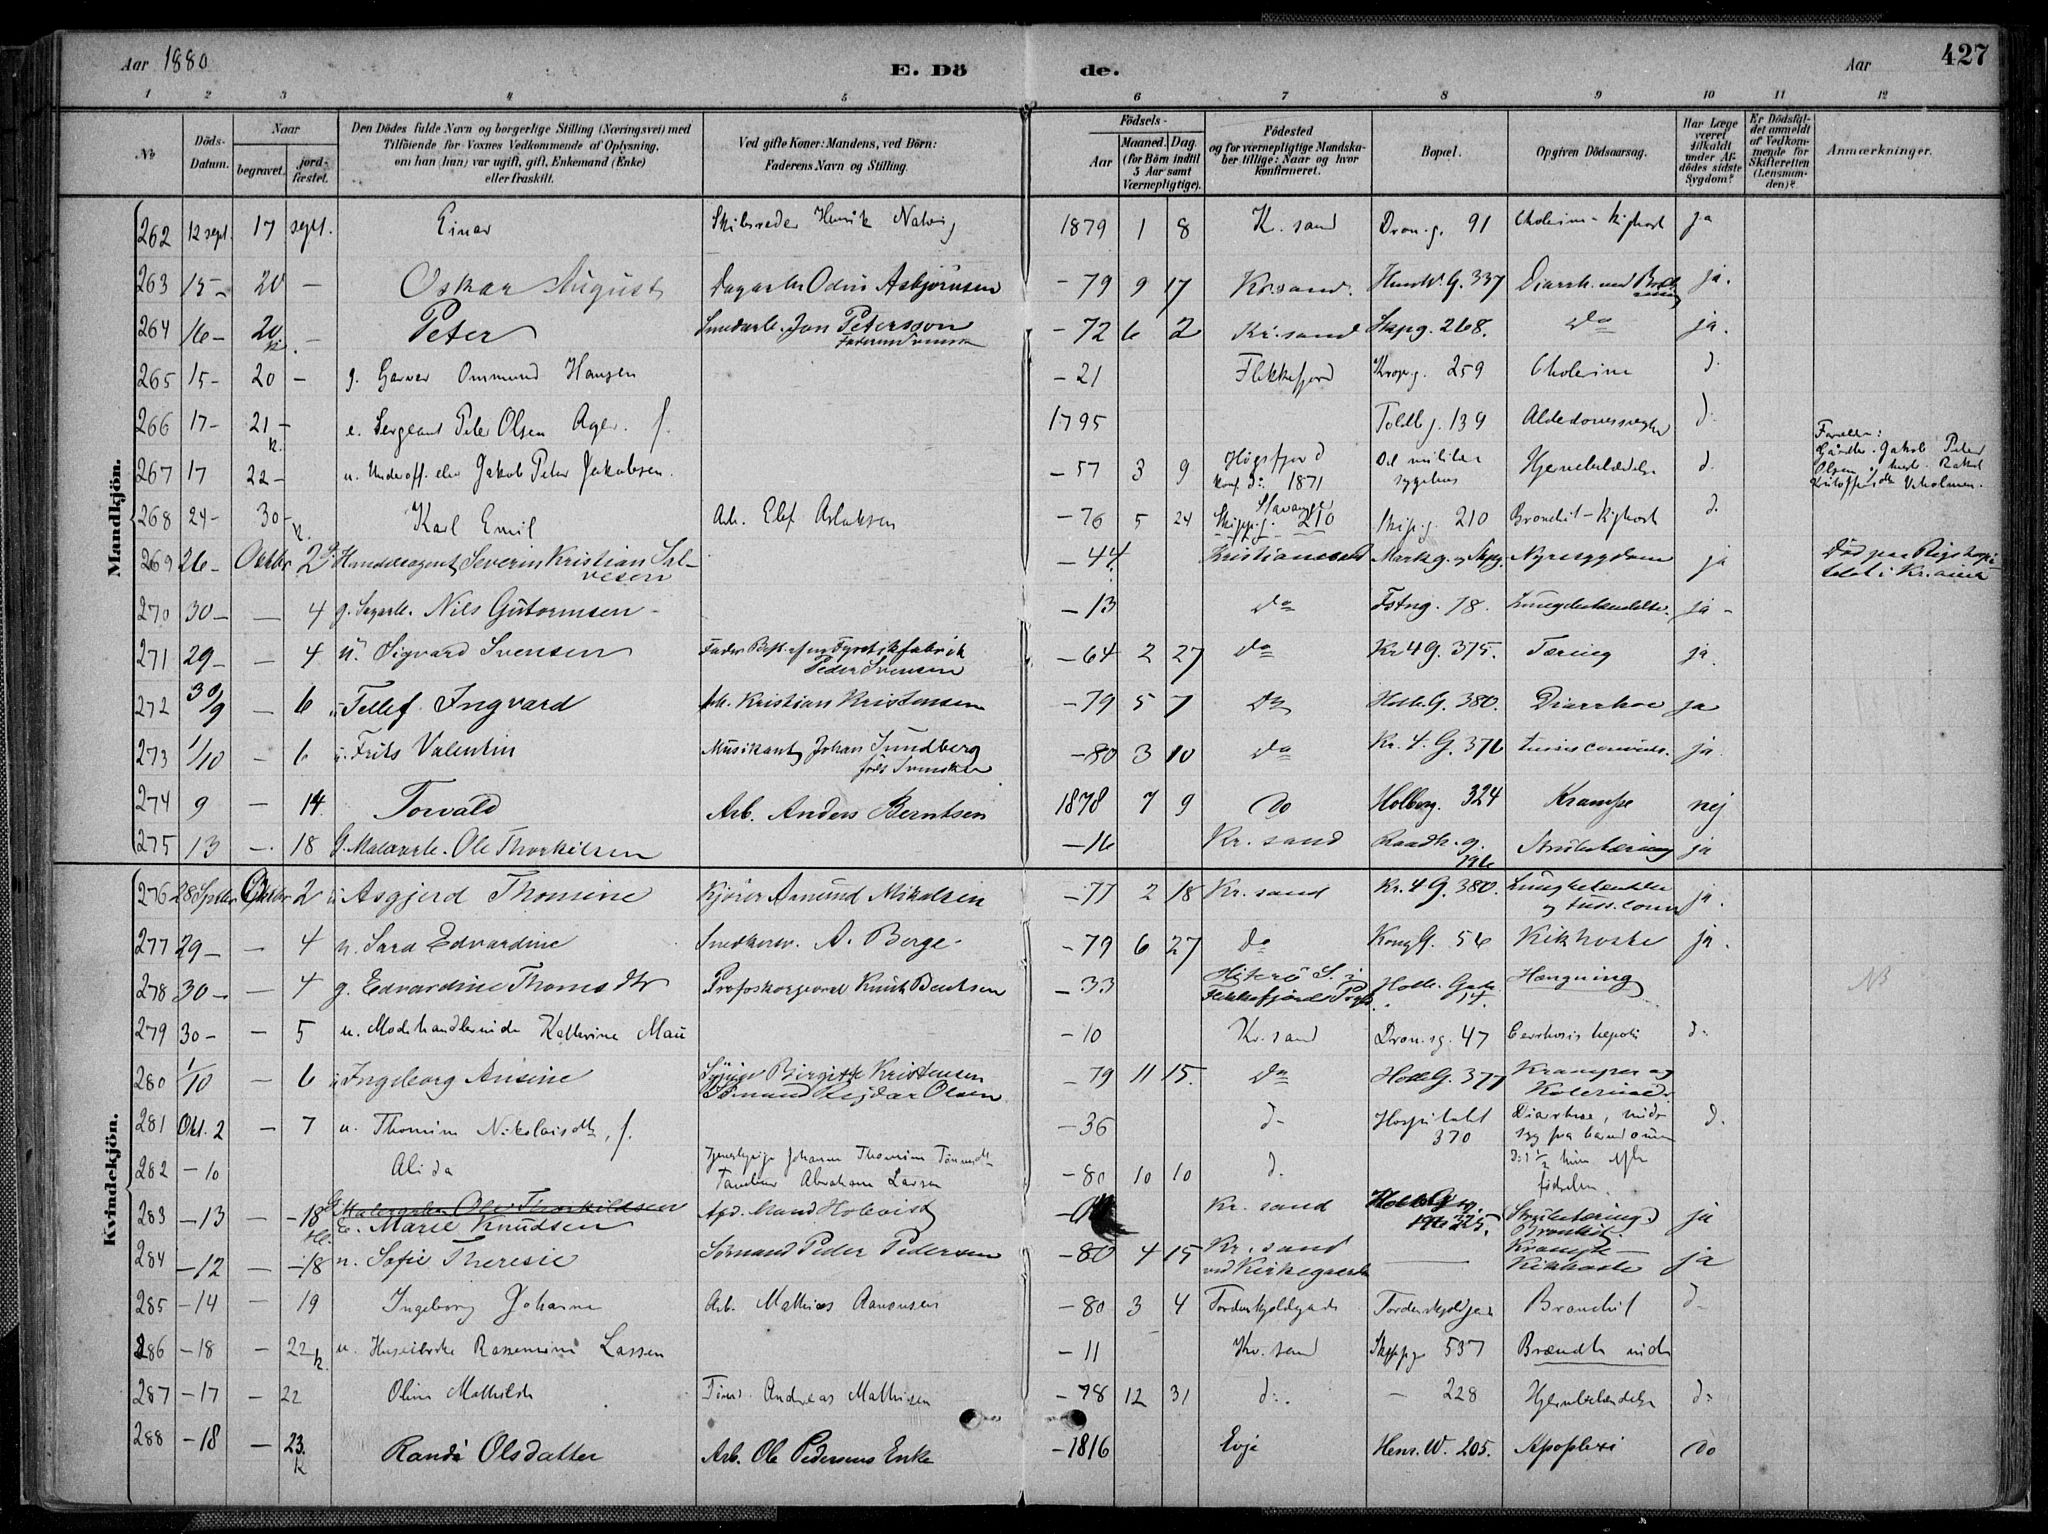 Aar 1880
E. Dö de.
Aar
427
1 2 3 4 5 6 7 8 9 10 11 12
No
Döds-Datum.
Naar
begravet.
jord-fæstet.
Den Dödes fulde Navn og borgerlige Stilling (Næringsvei) med
Tilföiende for Voxnes Vedkommende af Oplysning,
om han (hun) var ugift, gift, Enkemand (Enke)
eller fraskilt.
Ved gifte Koner: Mandens, ved Börn:
Faderens Navn og Stilling.
Födsels-
Aar
Maaned. Dag.
(for Börn indtil
5 Aar samt
Værnepligtige).
Födested
og for værnepligtige Mandska-
ber tillige: Naar og hvor
konfirmeret.
Bopæl.
Opgiven Dödsaarsag.
Har Læge
været
tilkaldt
under Af-
dödes sidste
Sygdom?
Er Dödsfal-
det anmeldt
af Vedkom-
mende for
Skifteretten
(Lensman-
den)?
Anmærkninger.
Mandkjön.
262 12 sept. 17 sept. Einar Skibsreder Henrik Natvig 1879 1 8 K.sand Dron.g. 91 Cholerine - Kighost ja
263 15 - 20 - Oskar August Dagarb. Odin Asbjörnsen - 79 9 17 Kr.sand. G. 337 Diarrh. med ja.
264 16 - 20 k. - Peter Smedarb. Jon Petersson - 72 6 2 Kr.sand Skpg. 268. Do ja.
265 15 - 20 - g. Garver Ommund Hansen - 21 Flekkefjord Kronp.g. 259 Cholerine d.
266 17 - 21 - k. e. Sergeant Peter Olsen Ager. f. 1795 Toldb.g. 139 d.
267 17 22 - u. Underoff. elev Jakob Peter Jakobsen. - 57 3 9 Högsfjord konf. 1871 Stavanger Det militære sygehus Hjernebetændelse d. Forældre: Jakob Peter Olsen
268 24 - 30 - k. Karl Emil Arb. Elef Aslaksen - 76 5 24 Skipp.g. 210 Skip.g. 210 Bronchit - Kighost d.
269 26 - Oktbr. 2 g. Handelsagent Severin Kristian Sal-
vesen - 44 Kristianssand Markg. og Skpg. Nyresygdom ja Död paa Rigshospi-
talet i Kr.ania
270 30 - - 4 g. Sagarb. Nils Gutormsen - 13 Do Fstng. 78. ja -
271 29 - - 4 u. Sigvard Svensen Fader Best. af en Fyrstikfabrik
Peder Svensen - 64 2 27 Do Kr 4 G. 375. Tæring ja.
272 30/9 - 6 u. Tellef Ingvard Arb. Kristian Kristensen - 79 5 7 Do Holb. G. 380. Diarrhoe ja
273 1/10 - 6 u. Frits Valentin Musikant Johan Sundberg
- 80 3 10 Do Kr. 4. G. 376 tussis ja
274 9 - 14. Torvald Arb. Anders Berntsen 1878 7 9 Do Holberg. 324 Krampe nej
275 13 - 18 G. Malerarb. Ole Thorkilsen - 16 Kr. sand Raadh. g. 196 Strubetæring ja
Kvindekjön.
276 28 Septbr. Oktbr. 2 u. Asgjerd Thomine Kjörer Amund Nikolsen - 77 2 18 Kr. sand Kr. 4 G. 380. ja.
277 29 - - 4 u. Sara Edvardine Snedkersv. A. Berge. - 79 6 27 Do Kong G. 56 Kikhoste ja.
278 30 - - 4 g. Edvardine Thomsdtr Profoskorporal Knud Bentsen - 33 Hiterö S. i
Flekkefjords Holb. Gade 14. Hængning NB
279 30 - - 5 u. Modehandlerinde Kathrine Mau - 10 Kr. sand Dron.sg. 47 Cerrhosis hepatis d.
280 1/10 - 6 u. Ingeborg Ansine Birgitte Kristensen
Sömand Rejdar Olsen - 79 11 15. Do Holb G. 377 Kramper og
281 Okt. 2 - 7 u. Thomine Nikolaisdtr, f. - 36 d. Hospitalet 370 Diarrhoe, d.
282 - 10 Alida Johanne Thomine
Abraham Larsen - 80 10 10 d. födselen.
283 - 13 - - 18 E. Marie Knudsen Apd. Mand Holqvist Kr. sand 325. ja
284 - 12 - - 18 u. Sofie Theresie Sömand Peder Pedersen - 80 4 15 Kr. sand
ved Kirkegaarden Krampe -
Kikhoste ja
285 - 14 - 19 Ingeborg Johanne Arb. Mathias Aanonsen - 80 3 4 Tordenskjoldgade Tordenskjoldgade Bronchit d.
286 - 18 - 22 k. u. Rasmine Lassen - 11 Kr. sand Skippg. 537 Brændte inde
287 - 17 - 22 Oline Mathilde Tömr. Andreas Mathisen - 78 12 31 d. - 228 Hjernebetændelse d.
288 - 18 - 23. k Randi Olsdatter Arb. Ole Pedersens Enke - 1816 Evje Henr. W. 205. Apoplexi do